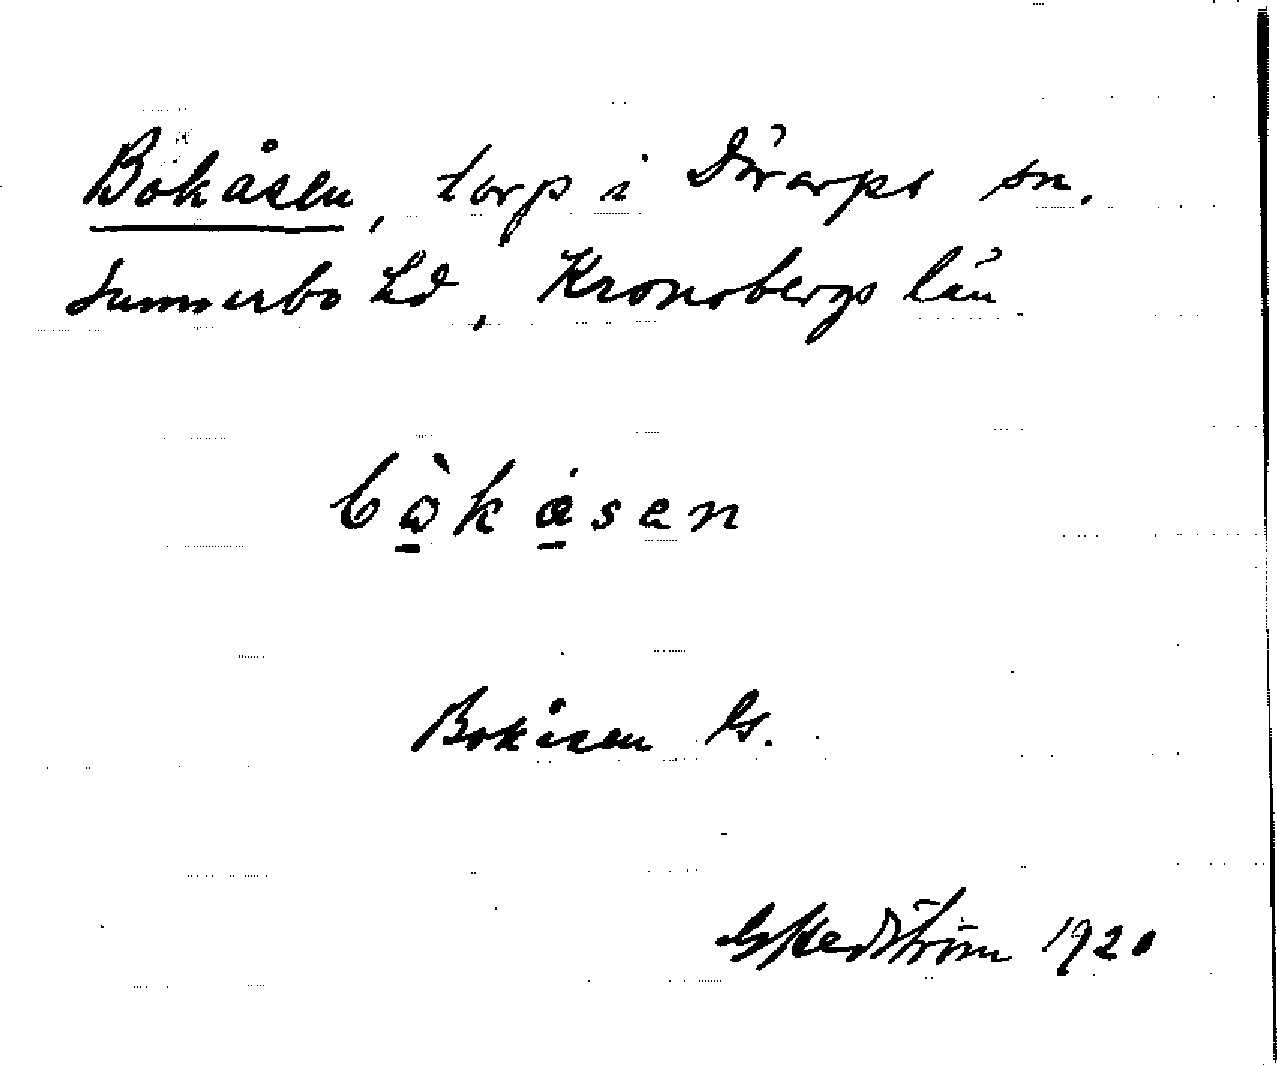 Bokåsen, torp i Dörarps sn.
Sunnerbo hd, Kronobergs län
bòkåsen
Bokåsen Gs.
G Hedström 1920